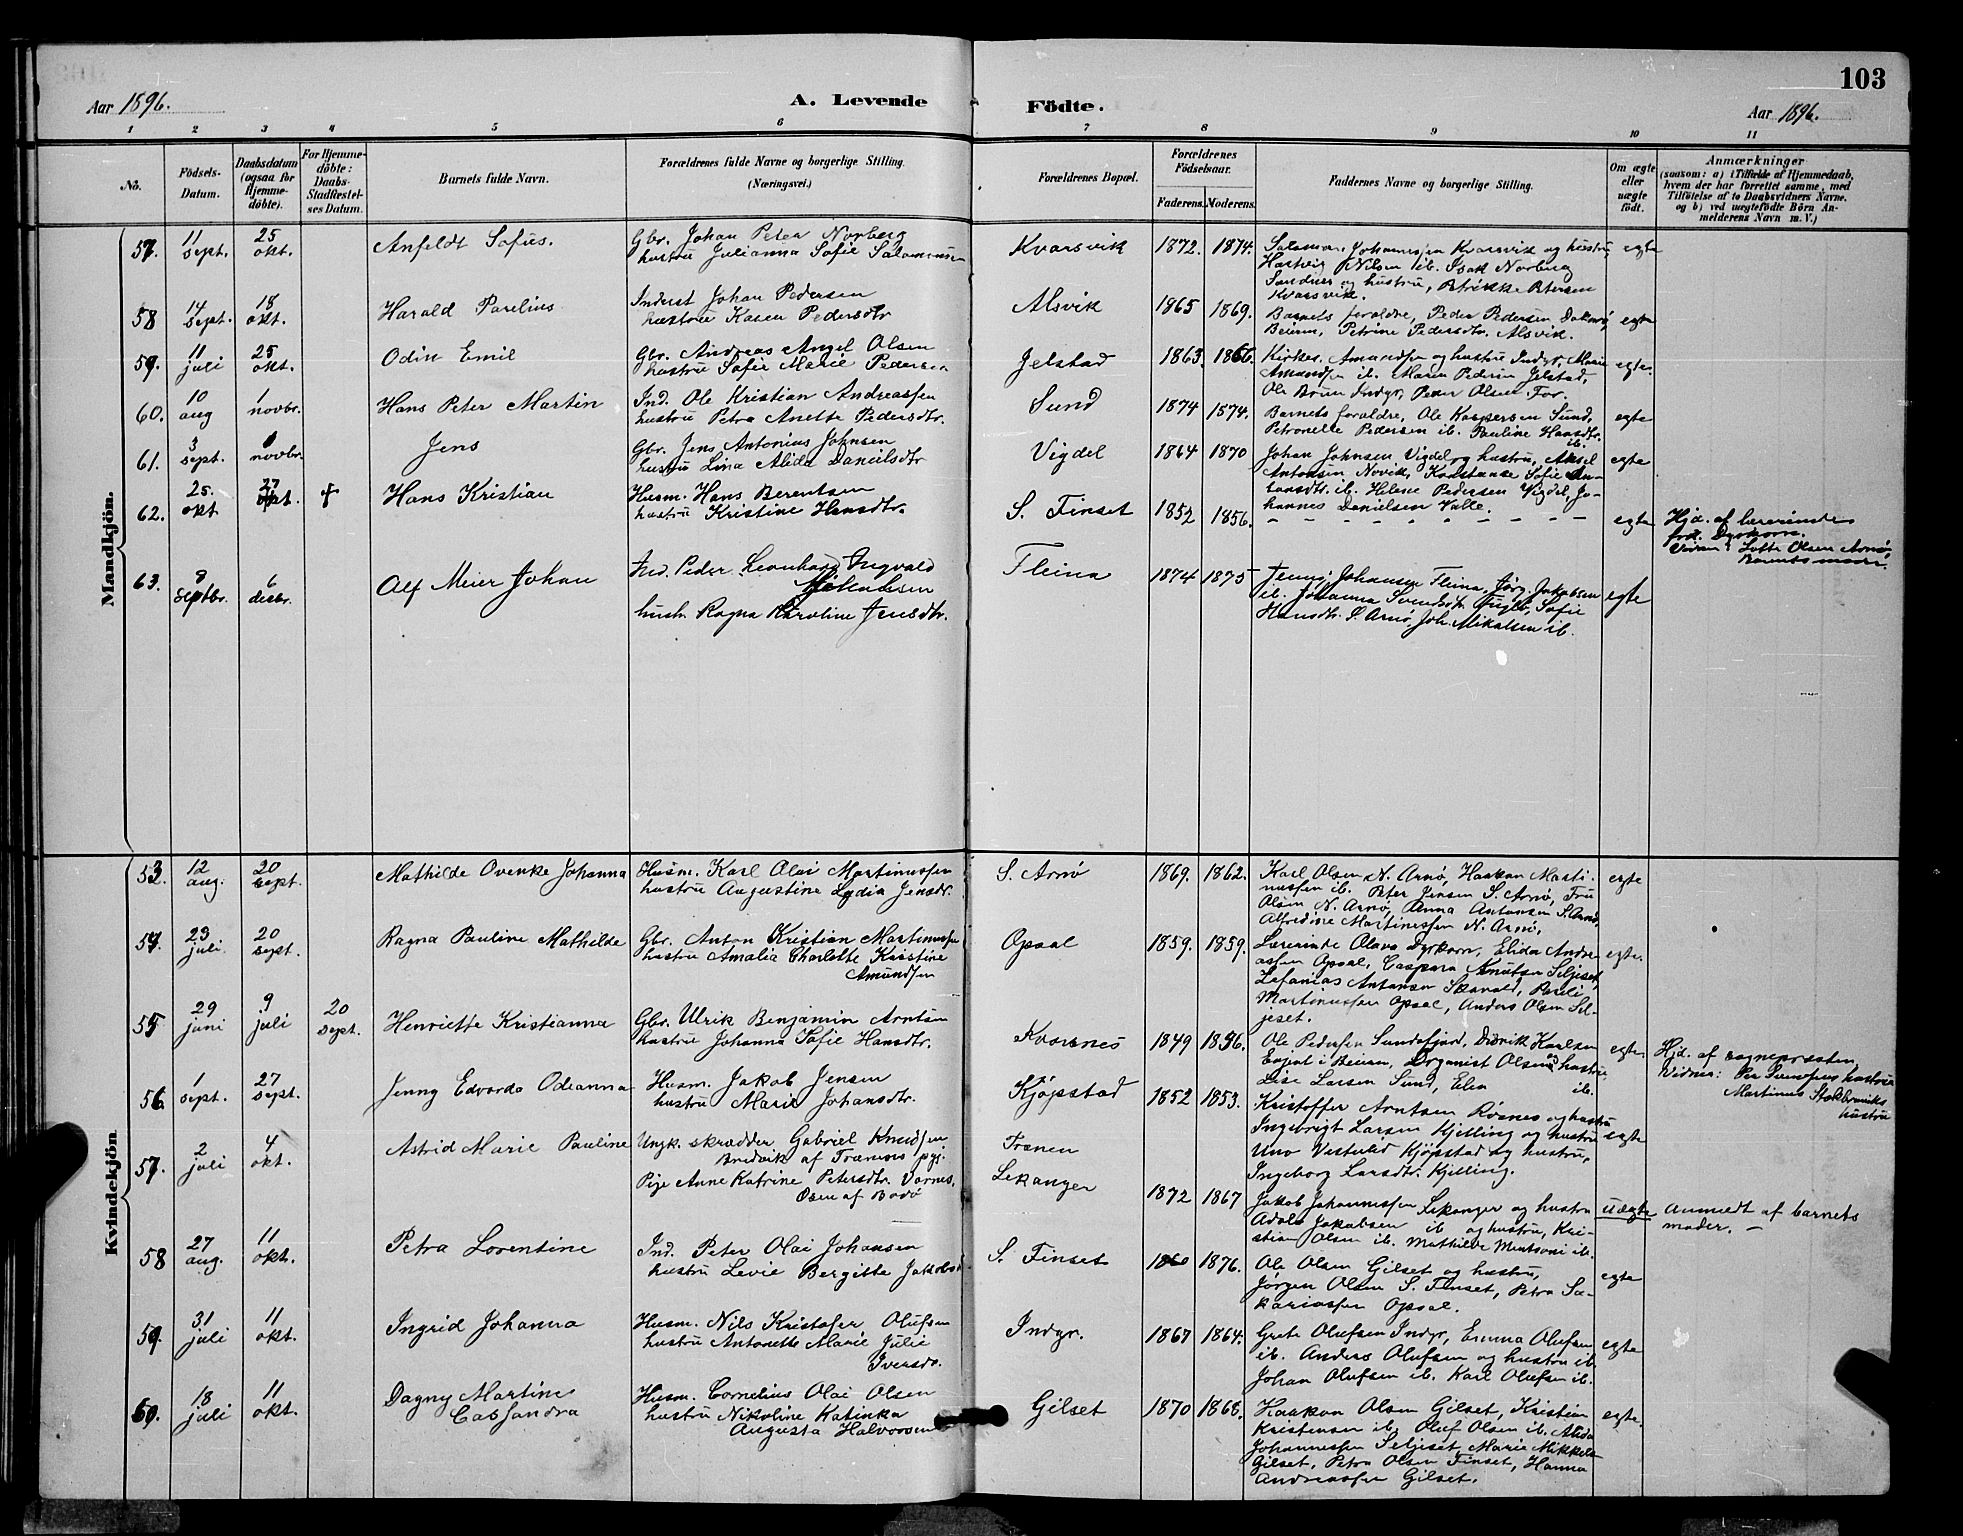 103
Aar 1896.
A. Levende Födte.
Aar 1896.
1 2 3 4 5 6 7 8 9 10 11
No.
Födsels-Datum.
Daabsdatum (ogsaa for Hjemmedöbte).
For Hjemmedöbte: Daabs-Stadfæstelses Datum.
Barnets fulde Navn.
Forældrenes fulde Navne og borgerlige Stilling. (Næringsvei.)
Forældrenes Bopæl.
Forældrenes Födselsaar.
Faderens. Moderens.
Faddernes Navne og borgerlige Stilling.
Om ægte eller uægte födt.
Anmærkninger
(saasom: a) i Tilfælde af Hjemmedaab, hvem der har forrettet samme, med Tilföielse af to Daabsvidners Navne. og b) ved uægtefödte Börn Anmelderens Navn m. V.)
Mandkjön.
57. 11 sept. 25 okt. Anfeldt Sofus. Gbr. Johan Peter Norberg
hustru Julianna Sofie Salamonsen
Kvarsvik 1872. 1874. Salamon Johannessen Kvarsvik og hustru, egte
Hartvig Nilsen ib. Isak Norberg
Sandnes og hustru, Petersen
Kvarsvik.
58 14 sept. 18 okt. Harald Parelius Inderst Johan Pedersen
hustru Karen Pedersdtr
Alsvik 1865 1869. Barnets forældre, Peder Pedersen egte
Beiern, Petrine Pedersdtr. Alsvik.
59. 11 juli 25 okt. Odin Emil Gbr. Andreas Angel Olsen
hustru Sofie Marie Pedersen
Jelstad 1863 1866. Amundsen og hustru Indgr, Marie egte.
Amundsen ib. Maren Pedersen Jelstad,
Ole Bruun Indgr, Peder Olsen For.
60. 10 aug 1 novbr. Hans Peter Martin Ind. Ole Kristian Andreassen
hustru Petra Anette Pedersdtr.
Sund 1874 1874. Barnets forældre, Ole Kaspersen Sund, egte
Petronelle Pedersen ib. Pauline Hansdtr. ib.
61. 3 sept. 1 novbr. Jens Gbr. Jens Antonius Johnsen
hustru Lina Alida Danielsdtr
Vigdel 1864 1870 Johan Johnsen Vigdel og hustru, Aksel egte
Antonsen Novik, Konstanse Sofie An-
tonsdtr. ib. Helene Pedersen Vigdel, Jo-
hannes Danielsen Valle.
62. 25. okt 27 okt. + Hans Kristian Husm. Hans Berentsen
hustru Kristine Hansdtr.
S. Finset 1852 1856. – – – – – – – – egte Hjd. af lærerinde
frk. Dyrkorn.
Vidner: Lotte Olsen Arnø,
Barnets moder.
63. 8 septbr. 6 desbr. Alf Meier Johan Ind. Peder Leonhard Ingvald
Mikalsen
hustr. Ragna Karoline Jensdtr.
Fleina 1874 1875 Jenns Johansen Fleina, Jørg. Jakobsen egte
ib. Johanna Svendsdtr. Fugle, Sofie
Hansdtr. S. Arnø, Joh. Mikalsen ib.
Kvindekjön
53. 12 aug. 20 sept. Mathilde Ovenke Johanna Husm. Karl Olai Martinussen
hustru Augustine Lydia Jensdtr.
S. Arnø 1869. 1862. Karl Olsen N. Arnø, Haakon Marti- egte
nussen ib. Peter Jensen S. Arnø, Fru
Olsen N. Arnø, Anna Antonsen S. Arnø,
Alfredine Martinessen N. Arnø.
54. 23 juli. 20 sept. Ragna Pauline Mathilde Gbr. Anton Kristian Martinussen
hustru Amalia Charlotte Kristine
Amundsen
Opsal 1859. 1859. Lærerinde Olava Dyrkorn, Elida Andre- egte.
assen Opsal, Caspara Knutsen Seljeset,
Zefanias Antonsen Skavold, Pauli
Martinussen Opsal, Anders Olsen Sel-
jeset.
55 29 juni 9 juli 20 sept. Henriette Kristianna Gbr. Ulrik Benjamin Arntsen
hustru Johanna Sofie Hansdtr.
Kvarsnes 1849 1856. Ole Pedersen Sundsfjord, Didrik Karlsen egte.
Engset i Beiern, Organist Olsen og hustru,
Lise Larsen Sund, Elen ib.
Hjd. af sognepræsten,
Vidner: Per hustru
Martinus
hustru
56. 1 sept. 27 sept. Jenny Edvarda Odeanna Husm. Jakob Jensen
hustru Marie Johansdtr.
Kjøpstad 1852 1853. Kristoffer Arntsen Røsnes og hustru egte
Ingebrigt Larsen Kjelling og hustru
Uno Vestulid Kjøpstad og hustru,
Ingeborg Larsdtr. Kjelling.
57. 2 juli 4 okt. Astrid Marie Pauline Ungk. skrædder Gabriel Knudsen
Bredvik af Trænens pgj.
Pige Anne Katrine Petersdtr. Vornes,
Osen af Bodø
Trænen
Lekanger
1872 1867 Jakob Johannessen Lekanger og hustru uægte Anmeldt af barnets
Adolf Jakobsen ib og hustru, Kri- moder. –
stian Olsen ib. Mathilde Mentsoni ib.
58 27 aug. 11 okt. Petra Lorentine Ind. Peter Olai Johansen
hustru Levie Bergitte Jakobsd
S. Finset 1860 1876. Ole Olsen Gilset og hustru, egte
Jørgen Olsen S. Finset, Petra Sa-
kariassen Opsal.
59. 31 juli 11 okt. Ingrid Johanna Husm. Nils Kristofer Olufsen
hustru Antonette Marie Julie
Iversdtr.
Indgr. 1867 1864. Grete Olufsen Indgr, Emma Olufsen egte
ib. Anders Olufsen og hustru ib
Johan Olufsen ib. Karl Olufsen ib.
60. 18 juli 11 okt. Dagny Martine
Cassandra
Husm. Cornelius Olai Olsen
hustru Nikoline Katinka
Augusta Halvorsen
Gilset 1870 1868. Haakon Olsen Gilset, Kristian egte.
Kristensen ib. Oluf Olsen ib. Alida
Johannessen Seljeset, Marie Mikkelsen
Gilset, Petra Olsen Finset, Hanna
Andreassen Gilset.